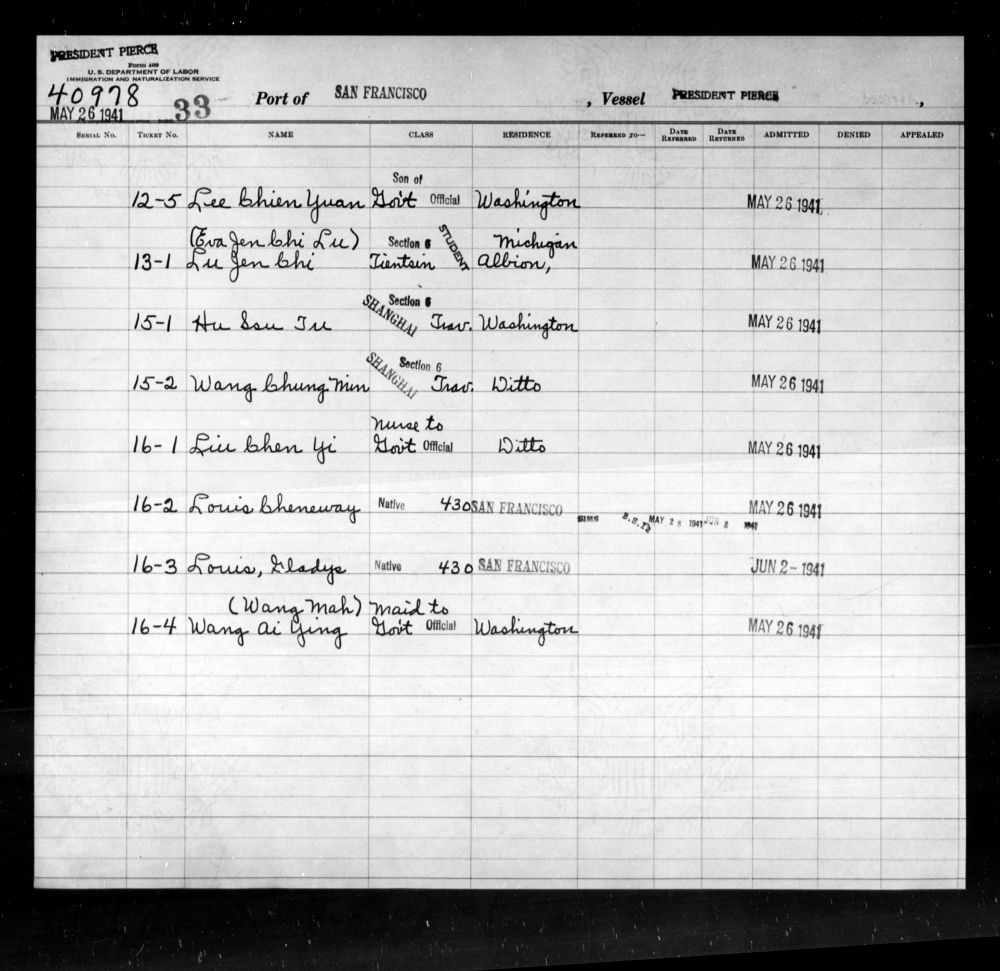 PRESIDENT PIERCE
Form 409
U. S. DEPARTMENT OF LABOR
IMMIGRATION AND NATURALIZATION SERVICE
40978
MAY 26 1941
33
Port of SAN FRANCISCO , Vessel PRESIDENT PIERCE ,
SERIAL NO. TICKET NO. NAME CLASS RESIDENCE REFERRED TO— DATE REFERRED DATE RETURNED ADMITTED DENIED APPEALED
Son of
12-5 Lee Chien Yuan Gov't Official Washington MAY 26 1941
(Eva Jen Chi Lu) Section 6 STUDENT Michigan
13-1 Lu Jen Chi Tientsin Albion, MAY 26 1941
Section 6
15-1 Hu Ssu Tu SHANGHAI Trav. Washington MAY 26 1941
Section 6
15-2 Wang Chung Min SHANGHAI Trav. Ditto MAY 26 1941
Nurse to
16-1 Liu Chen Yi Gov't Official Ditto MAY 26 1941
16-2 Louis Cheneway Native 430 SAN FRANCISCO MAY 26 1941
SIMS MAY 28 1941 JUN 2 1941
16-3 Louis, Gladys Native 430 SAN FRANCISCO JUN 2- 1941
(Wang Mah) Maid to
16-4 Wang Ai Ying Gov't Official Washington MAY 26 1941